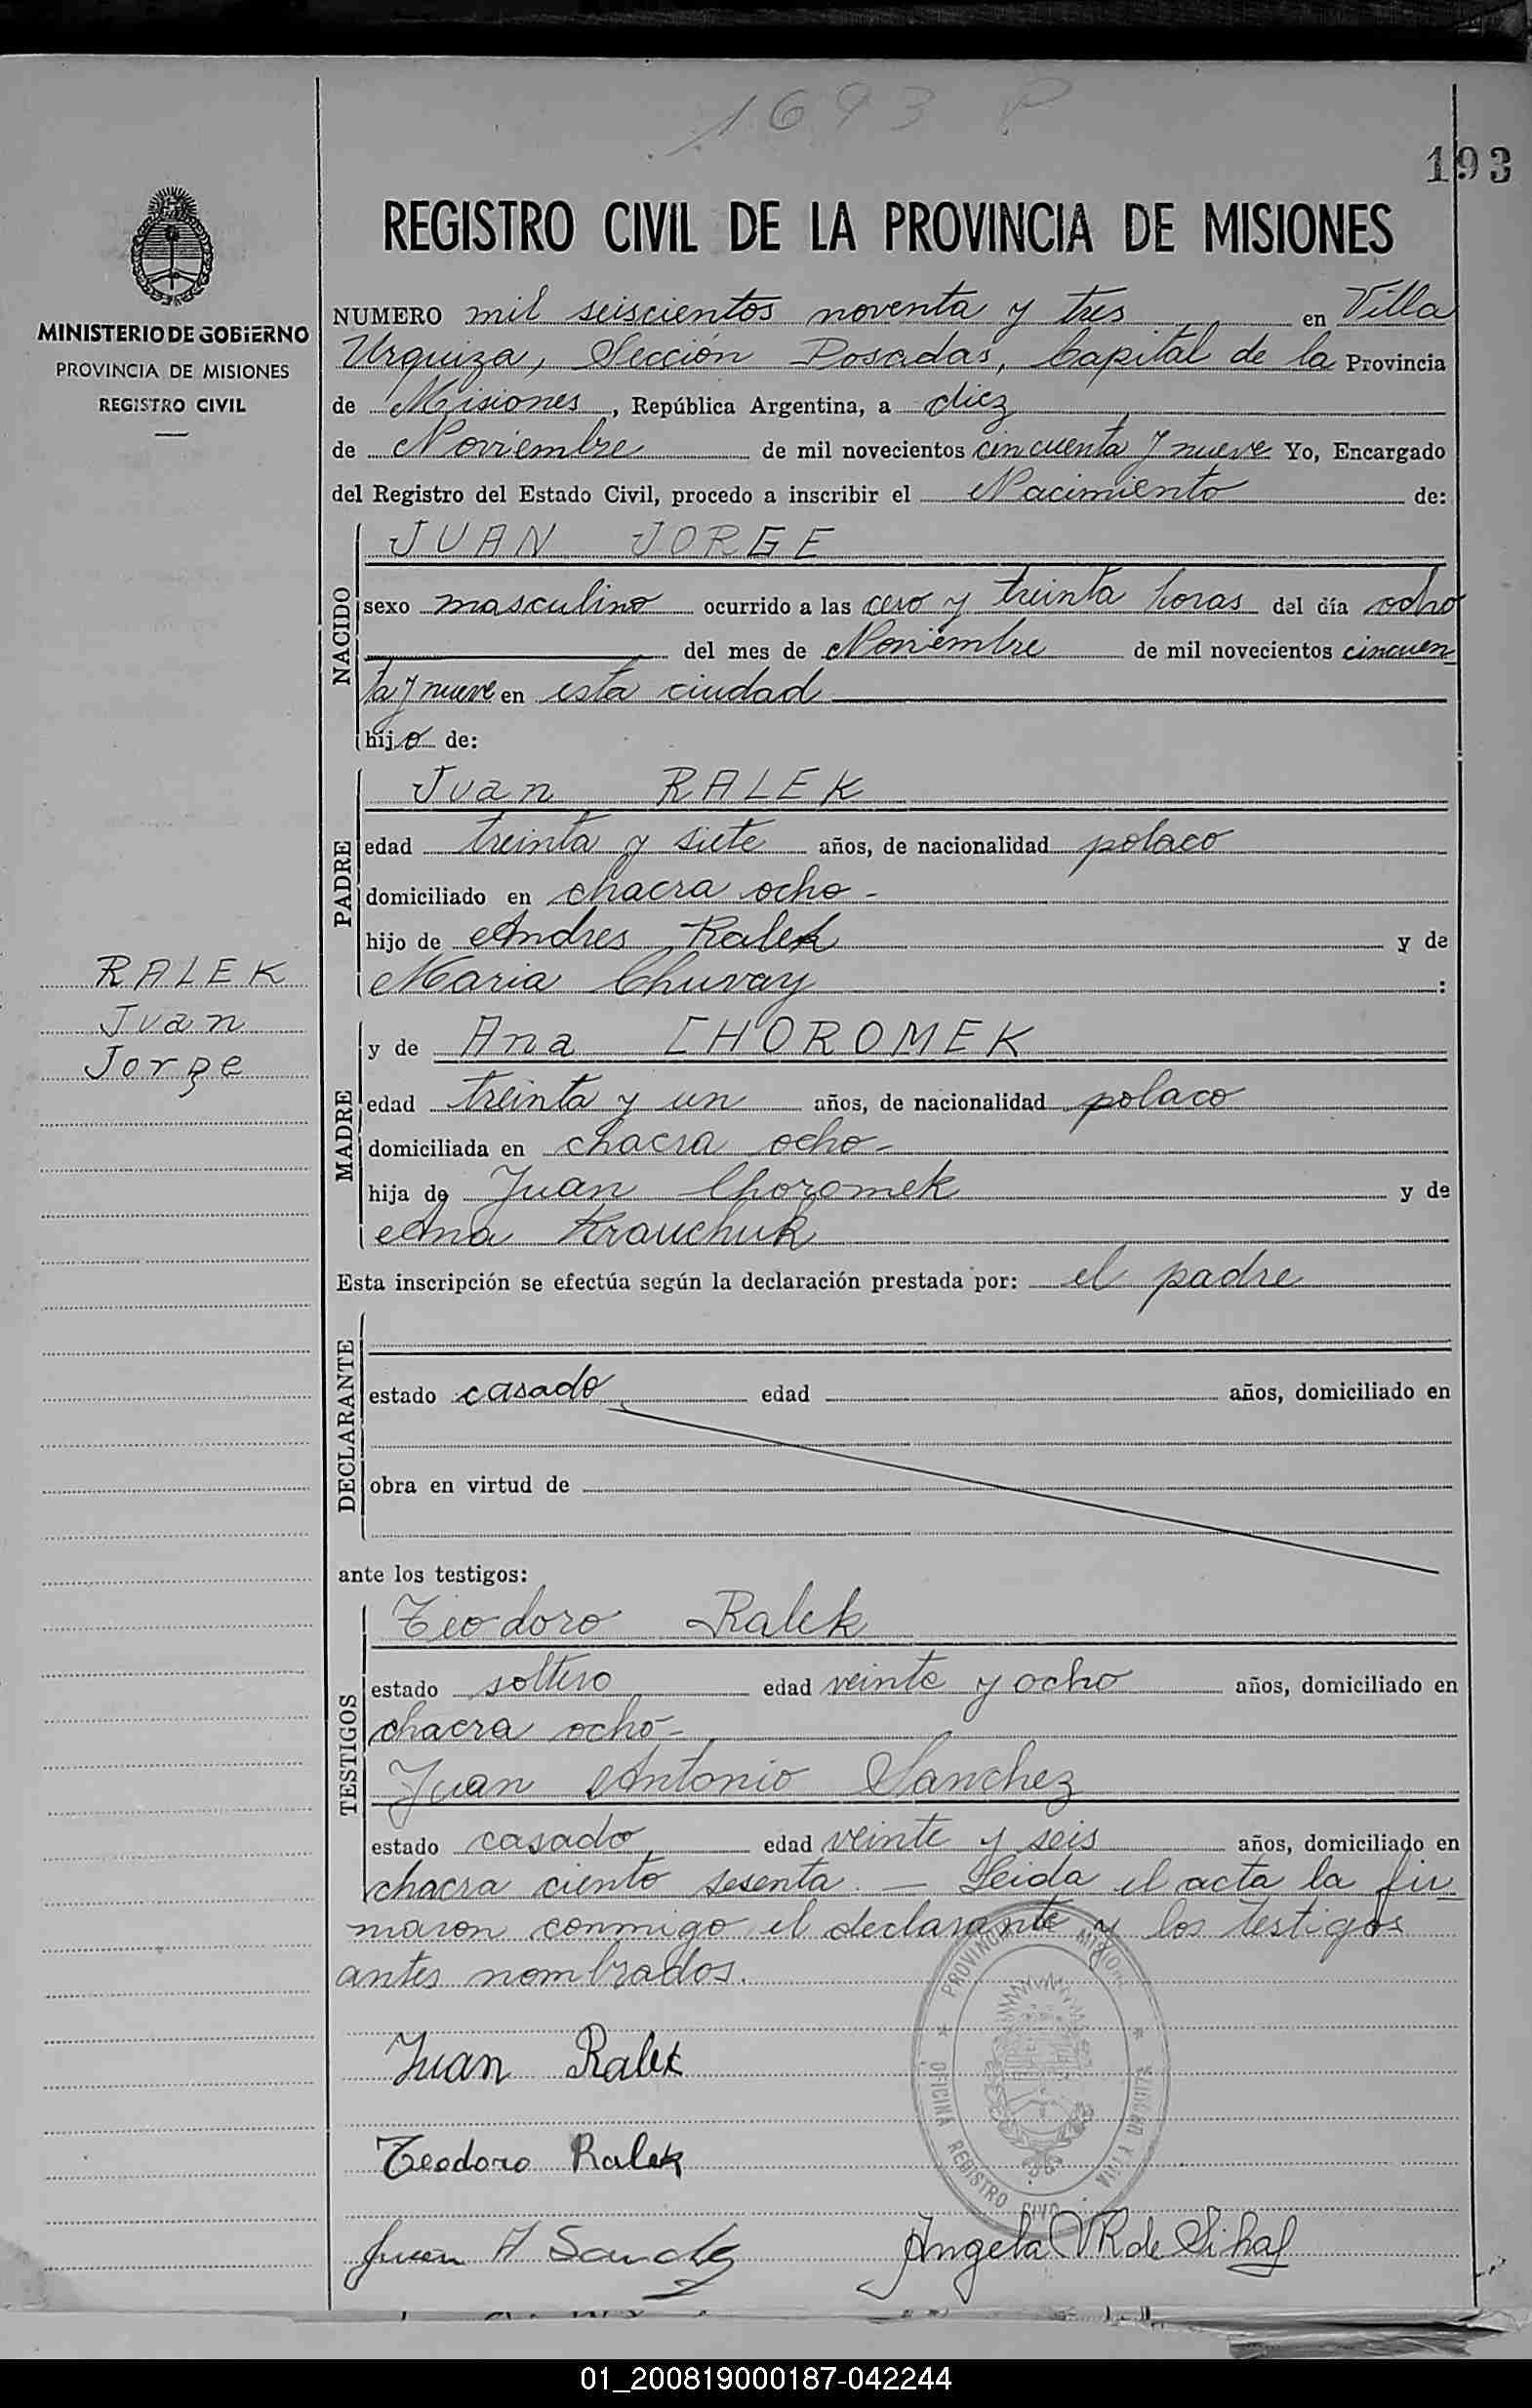 1693 P
193
REGISTRO CIVIL DE LA PROVINCIA DE MISIONES
MINISTERIO DE GOBIERNO
PROVINCIA DE MISIONES
REGISTRO CIVIL
NUMERO mil seiscientos noventa y tres en Villa
Urquiza, Sección Posadas, Capital de la Provincia
de Misiones, República Argentina, a diez
de Noviembre de mil novecientos cincuenta y nueve Yo, Encargado
del Registro del Estado Civil, procedo a inscribir el Nacimiento de:
NACIDO
JUAN JORGE
sexo masculino ocurrido a las cero y treinta horas del día ocho
del mes de Noviembre de mil novecientos cincuen
ta y nueve en esta ciudad
hijo de:
PADRE
Juan RALEK
edad treinta y siete años, de nacionalidad polaco
domiciliado en chacra ocho-
hijo de Andres Ralek y de
Maria Chuvay :
RALEK
Juan
Jorge
MADRE
y de Ana CHOROMEK
edad treinta y un años, de nacionalidad polaco
domiciliada en chacra ocho-
hija de Juan Choromek y de
Ana Krauchuk
Esta inscripción se efectúa según la declaración prestada por: el padre
DECLARANTE
estado casado edad años, domiciliado en
obra en virtud de
ante los testigos:
TESTIGOS
Teodoro Ralek
estado soltero edad veinte y ocho años, domiciliado en
chacra ocho-
Juan Antonio Sanchez
estado casado edad veinte y seis años, domiciliado en
chacra ciento sesenta. — Leida el acta la fir
maron conmigo el declarante y los testigos
antes nombrados.
PROVINCIA MISIONES
OFICINA REGISTRO CIVIL VILLA URQUIZA
Juan Ralek
Teodoro Ralek
Juan A Sanchez
Angela R de
01_200819000187-042244